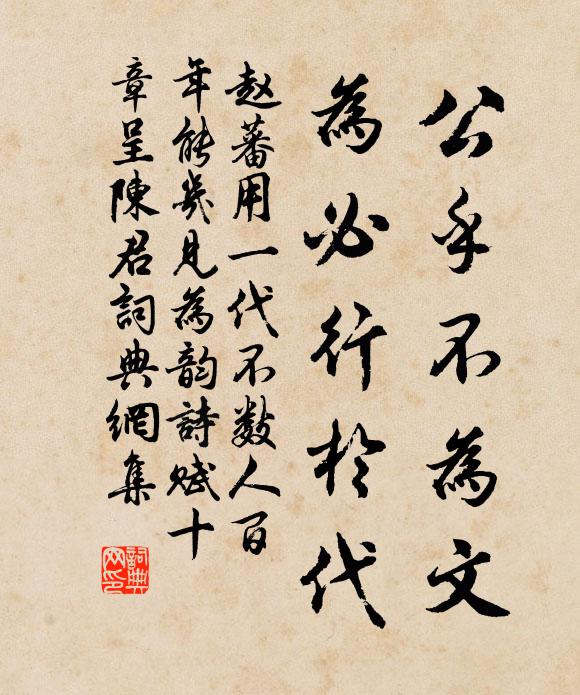 公乎不為文
為必行於代
赵蕃用一代不数人百
年能幾見為韵詩賦十
章呈陳君詞典網集
詞典网印